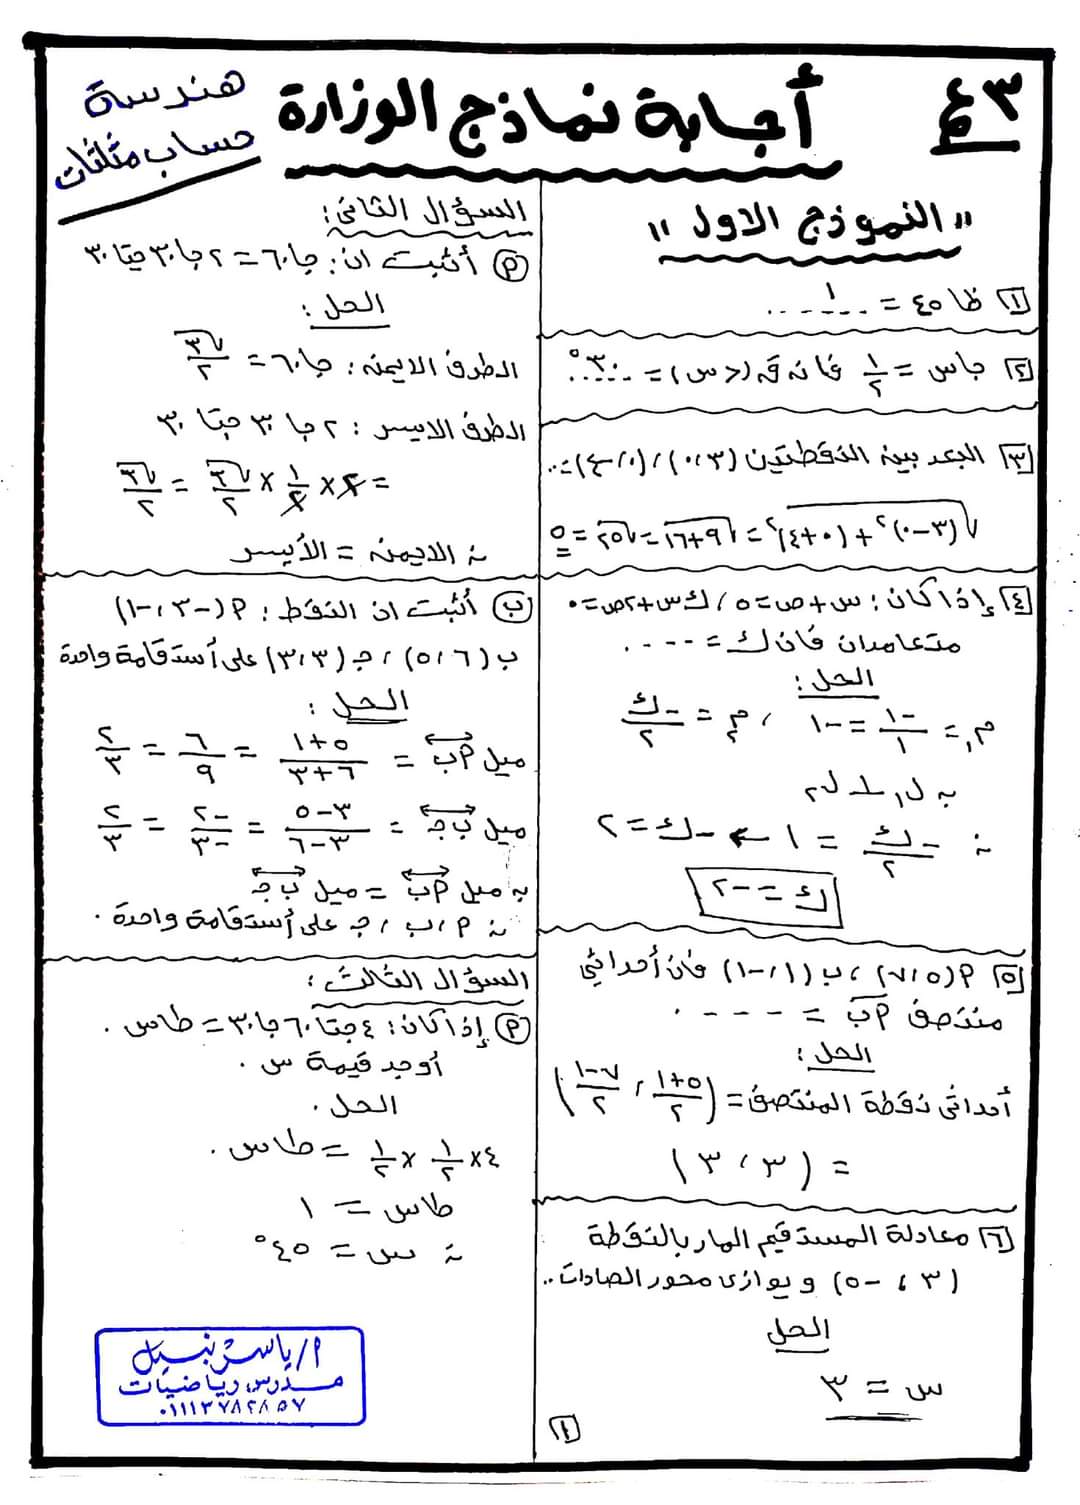 ٣ع
أجابة نماذج الوزارة
هندسة
حساب مثلثات
"النموذج الاول"
١ ظا ٤٥ = ...١...
٢ جاس = ١/٢ فانه قه (دس) = ..٣٠°..
٣ البعد بينه النقطتين (٣،٠)،(٠،-٤) = ..
√(٣-٠)² + (٠+٤)² = √٩+١٦ = √٢٥ = ٥
٤ إذا كان: س+ص=٥، ك س+٢ص=٠
متعامدان فان ك = ----.
الحل:
م١ = -١/١ = -١ ، م٢ = -ك/٢
∵ ل١ ⊥ ل٢
∴ -ك/٢ = ١ ← -ك = ٢
ك = -٢
٥ م(٥،٧)، ب(١،-١) فان أحداثي
منتصف مب = ----.
الحل:
أحداثى نقطة المنتصف = (٥+١/٢ ، ٧-١/٢)
= (٣،٣)
٦ معادلة المستقيم المار بالنقطة
(٣،-٥) و يوازى محور الصادات..
الحل
س = ٣
السؤال الثانى:
م أثبت ان: جا٦٠ = ٢جا٣٠ جتا٣٠
الحل:
الطرف الايمنه: جا٦٠ = √٣/٢
الطرف الايسر: ٢جا٣٠ جتا٣٠
= ٢ × ١/٢ × √٣/٢ = √٣/٢
∴ الايمنه = الأيسر
ب أثبت ان النقط: م(-٣،-١)
ب(٦،٥)، جـ(٣،٣) على أستقامة واحدة
الحل:
ميل مب = ٥+١/٦+٣ = ٦/٩ = ٢/٣
ميل بجـ = ٣-٥/٣-٦ = -٢/-٣ = ٢/٣
∵ ميل مب = ميل بجـ
∴ م،ب،جـ على أستقامة واحدة.
السؤال الثالث:
م إذا كان: ٤جتا٦٠ جا٣٠ = طاس.
أوجد قيمة س.
الحل.
٤ × ١/٢ × ١/٢ = طاس.
طاس = ١
∴ س = ٤٥°
م/ياسر نبيل
مدرس رياضيات
٠١١١٣٧٨٢٨٥٧
١